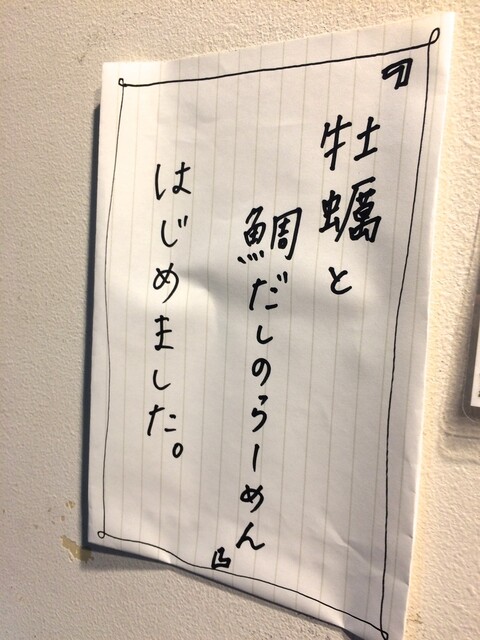 『牡蠣と
鯛だしのらーめん』
はじめました。